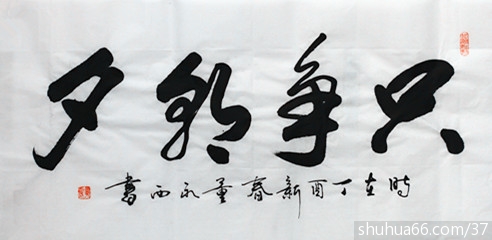 只争朝夕
时在丁酉新春董永西书
shuhua66.com/37